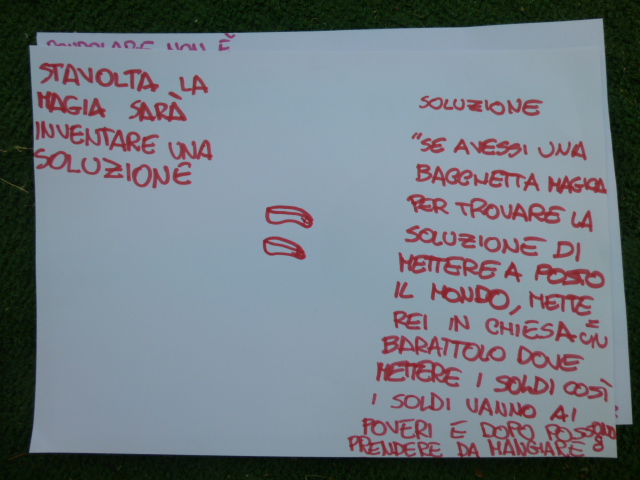 DONDOLARE NON È
STAVOLTA LA
MAGIA SARÀ
INVENTARE UNA
SOLUZIONE
=
SOLUZIONE
"SE AVESSI UNA
BACCHETTA MAGICA
PER TROVARE LA
SOLUZIONE DI
METTERE A POSTO
IL MONDO, METTE
REI IN CHIESA = UN
BARATTOLO DOVE
METTERE I SOLDI COSÌ
I SOLDI VANNO AI
POVERI E DOPO POSSONO
PRENDERE DA MANGIARE